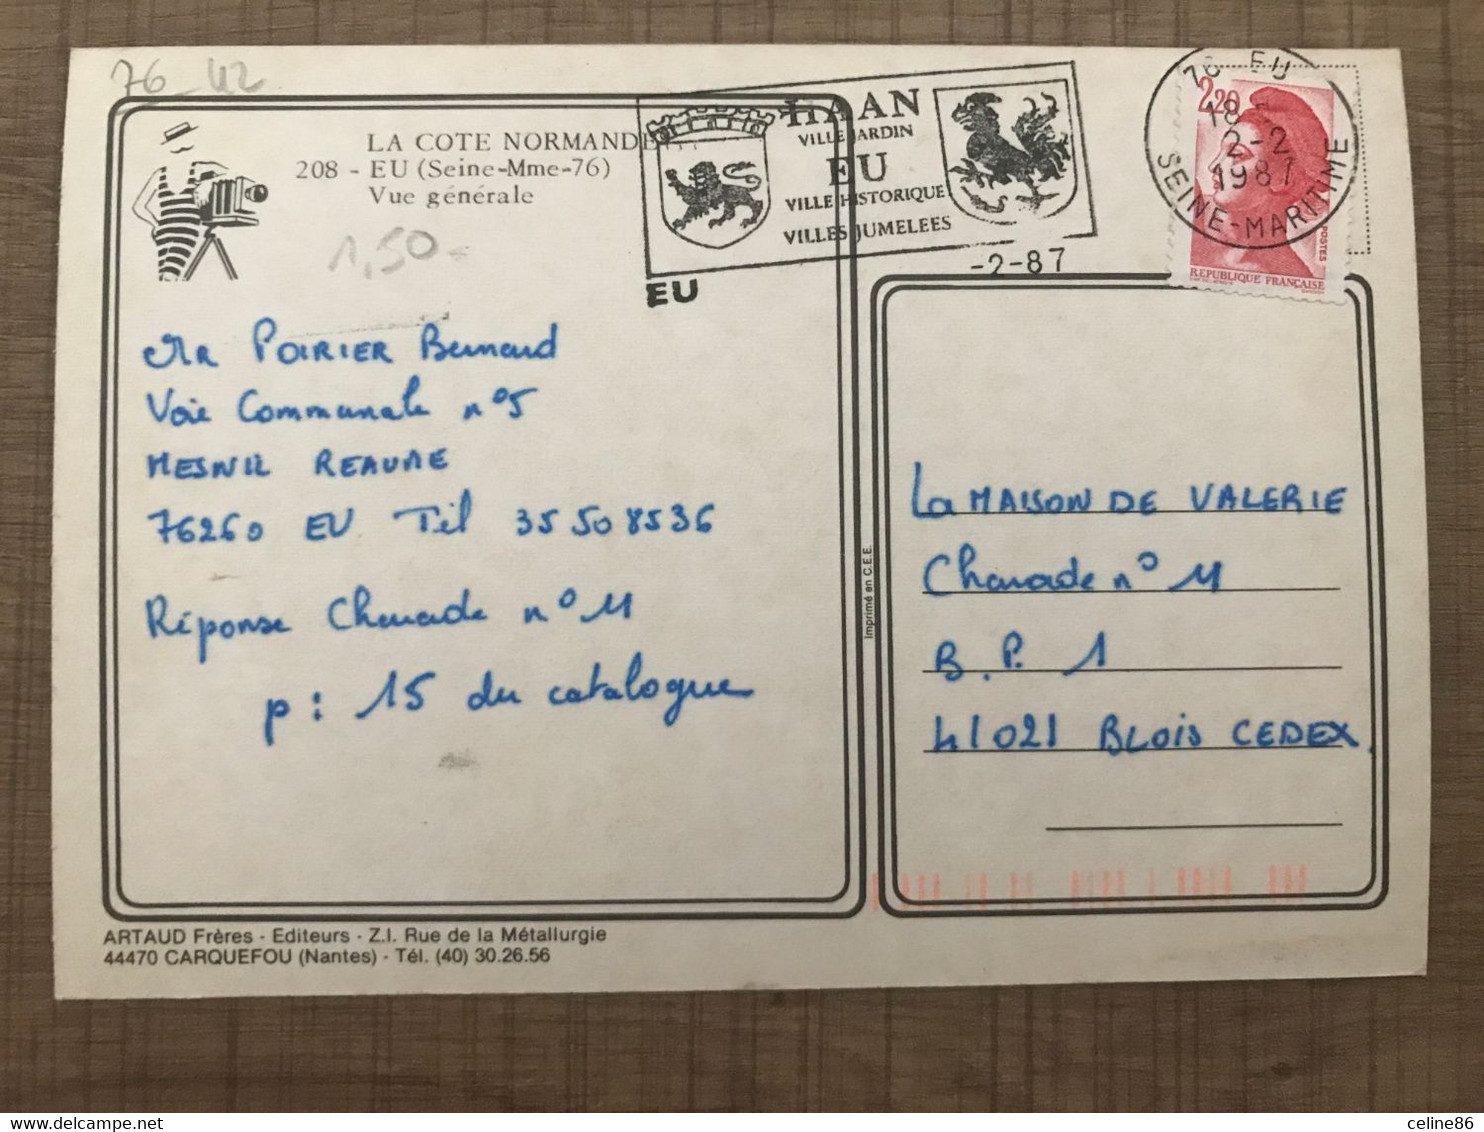 76_42
LA COTE NORMANDE
208 - EU (Seine-Mme-76)
Vue générale
1,50
HAAN
VILLE JARDIN
EU
VILLE HISTORIQUE
VILLES JUMELEES
EU
-2-87
76 EU
18
2-2
1987
SEINE-MARITIME
2,20
POSTES
REPUBLIQUE FRANÇAISE
Mr POIRIER Bernard
Voie Communale n°5
MESNIL REAUME
76260 EU Tél 35 50 85 36
Réponse Charade n° 11
p: 15 du catalogue
Imprimé en C.E.E.
La MAISON DE VALERIE
Charade n° 11
B.P. 1
41021 BLOIS CEDEX.
ARTAUD Frères - Editeurs - Z.I. Rue de la Métallurgie
44470 CARQUEFOU (Nantes) - Tél. (40) 30.26.56
delcampe.net
celine86